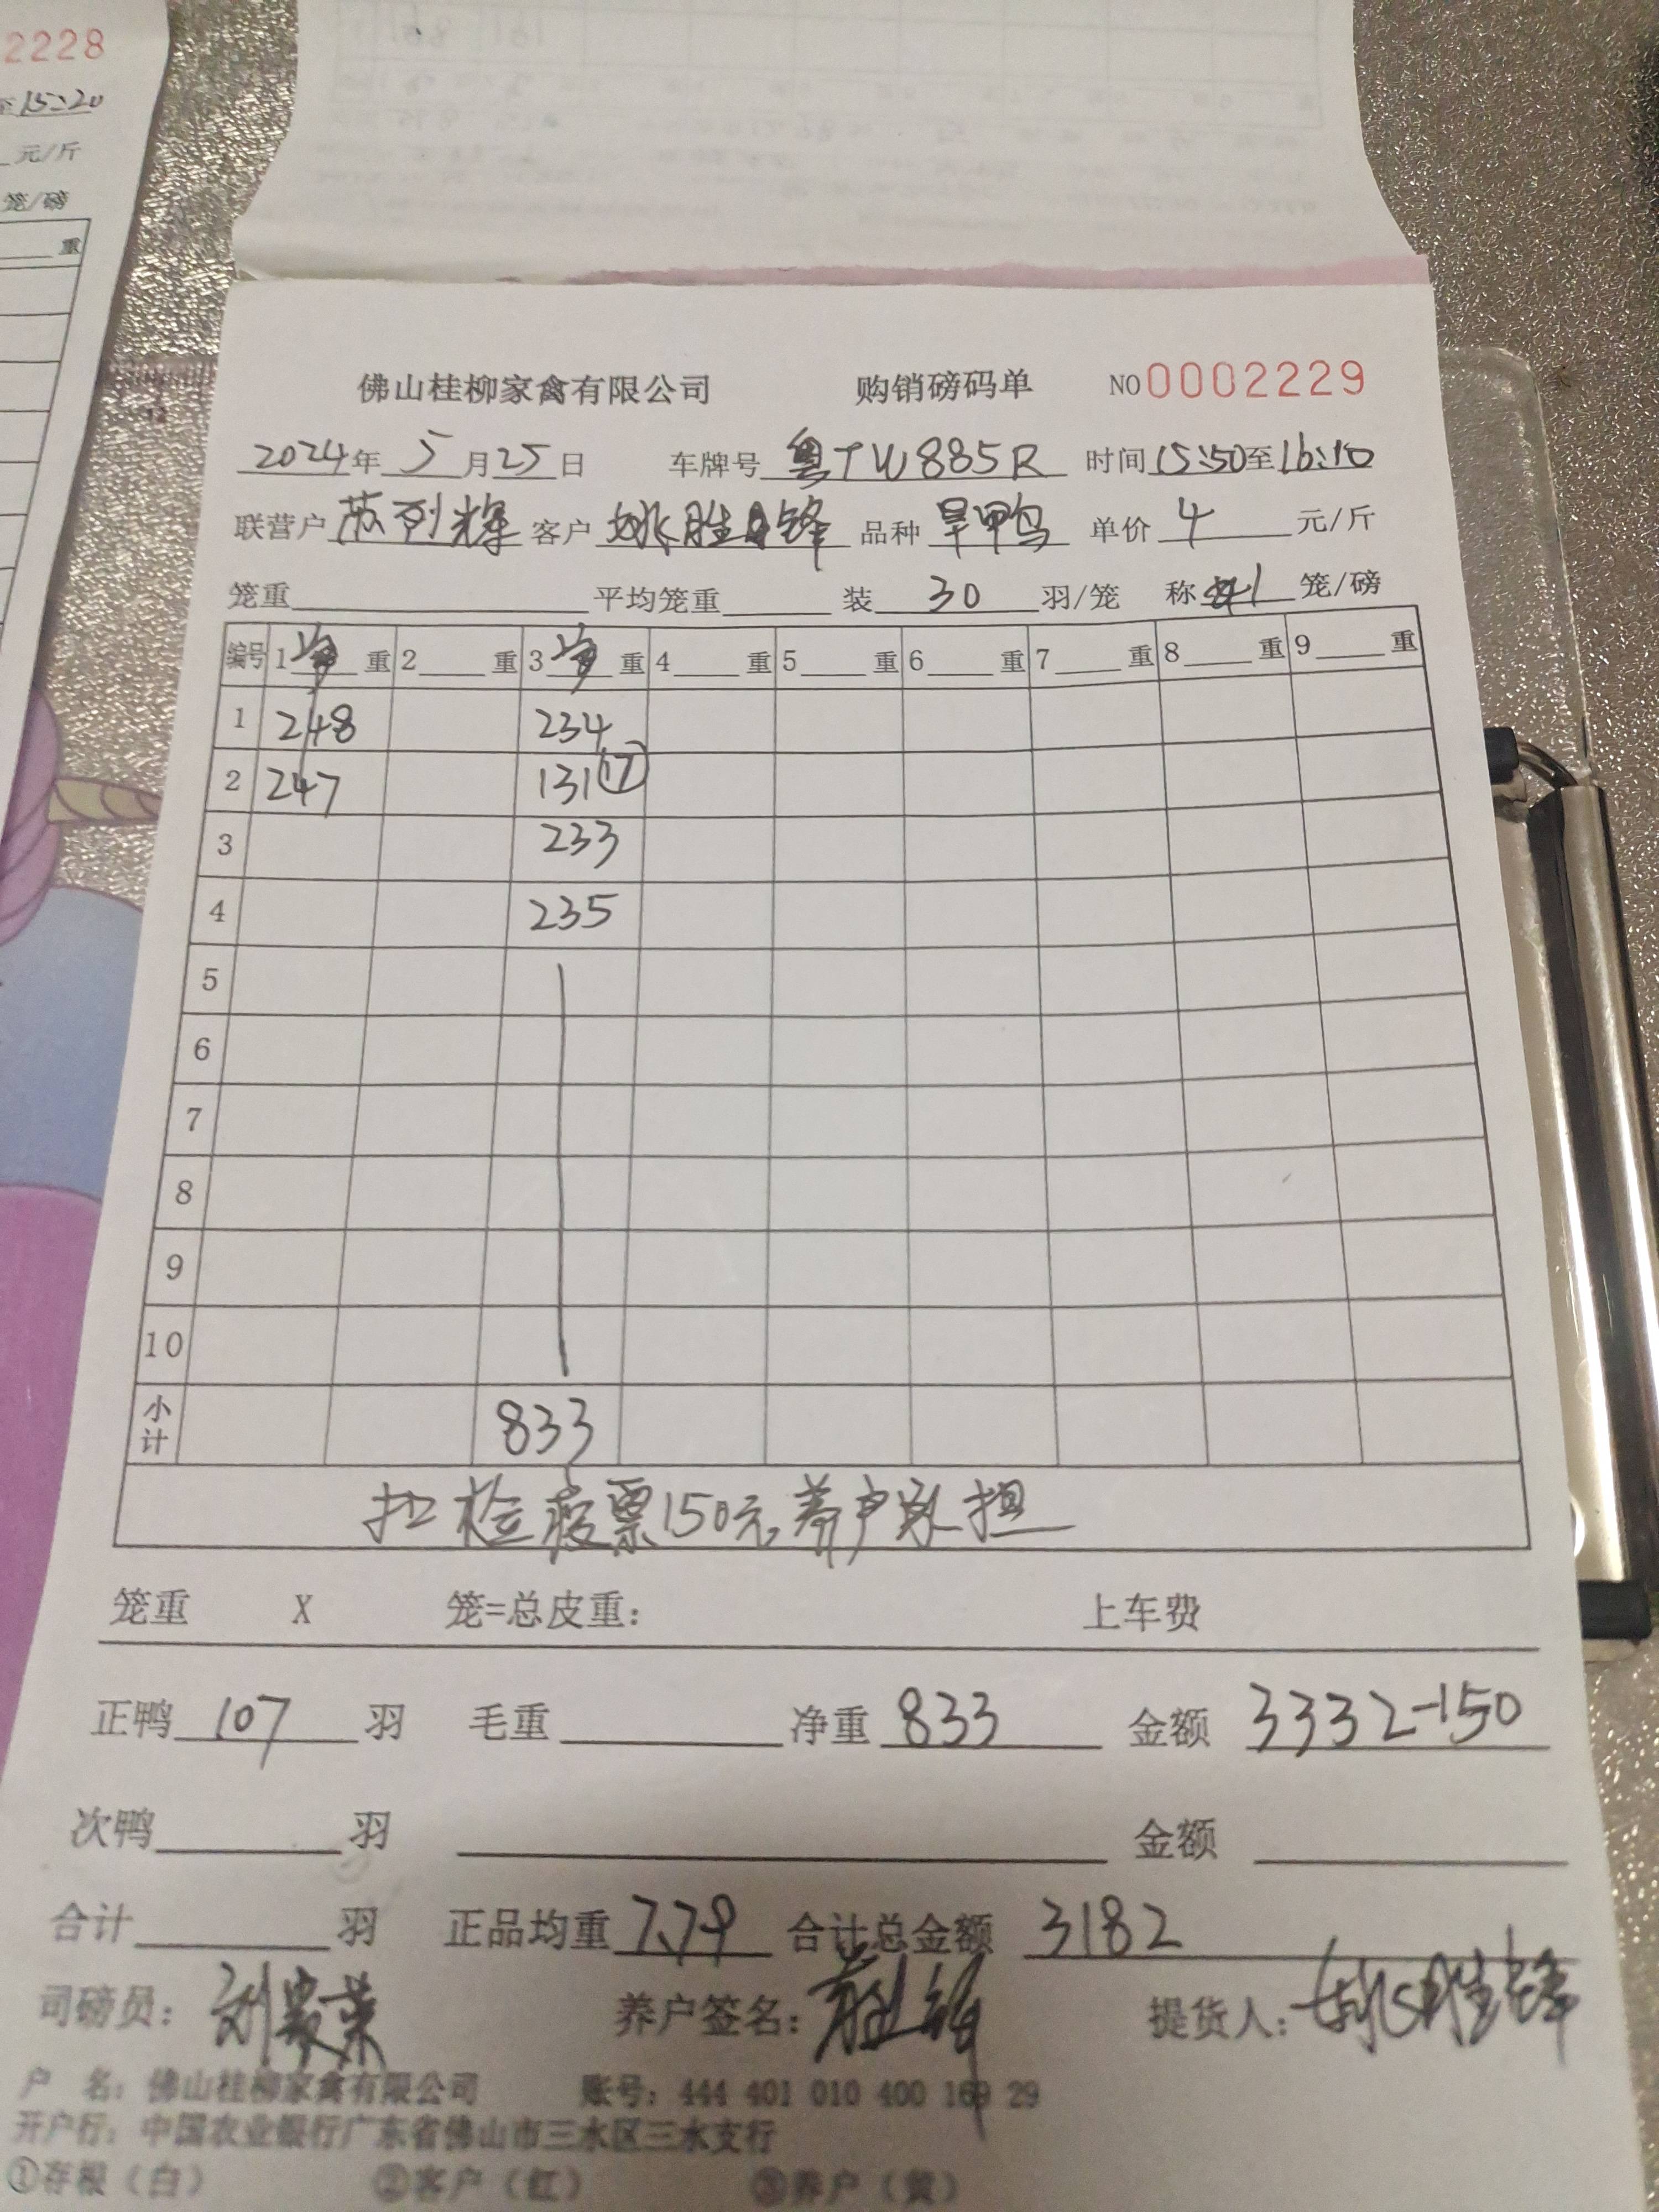 2228
15:20
元/斤
笼/磅
重
佛山桂柳家禽有限公司 购销磅码单 NO 0002229
2024年 5月25日 车牌号 粤TW885R 时间 15:50至16:10
联营户 苏列辉 客户 姚胜锋 品种 旱鸭 单价 4 元/斤
笼重 平均笼重 装 30 羽/笼 称 1 笼/磅
编号 1 净 重 2 重 3 净 重 4 重 5 重 6 重 7 重 8 重 9 重
1 248 234
2 247 131 ⑰
3 233
4 235
5
6
7
8
9
10
小计 833
扣检疫票150元,养户承担
笼重 X 笼=总皮重: 上车费
正鸭 107 羽 毛重 净重 833 金额 3332-150
次鸭 羽 金额
合计 羽 正品均重 7.79 合计总金额 3182
司磅员: 刘家荣 养户签名: 提货人: 姚胜锋
户 名: 佛山桂柳家禽有限公司 账号: 444 401 010 400 169 29
开户行: 中国农业银行广东省佛山市三水区三水支行
①存根(白) ②客户(红) ③养户(黄)